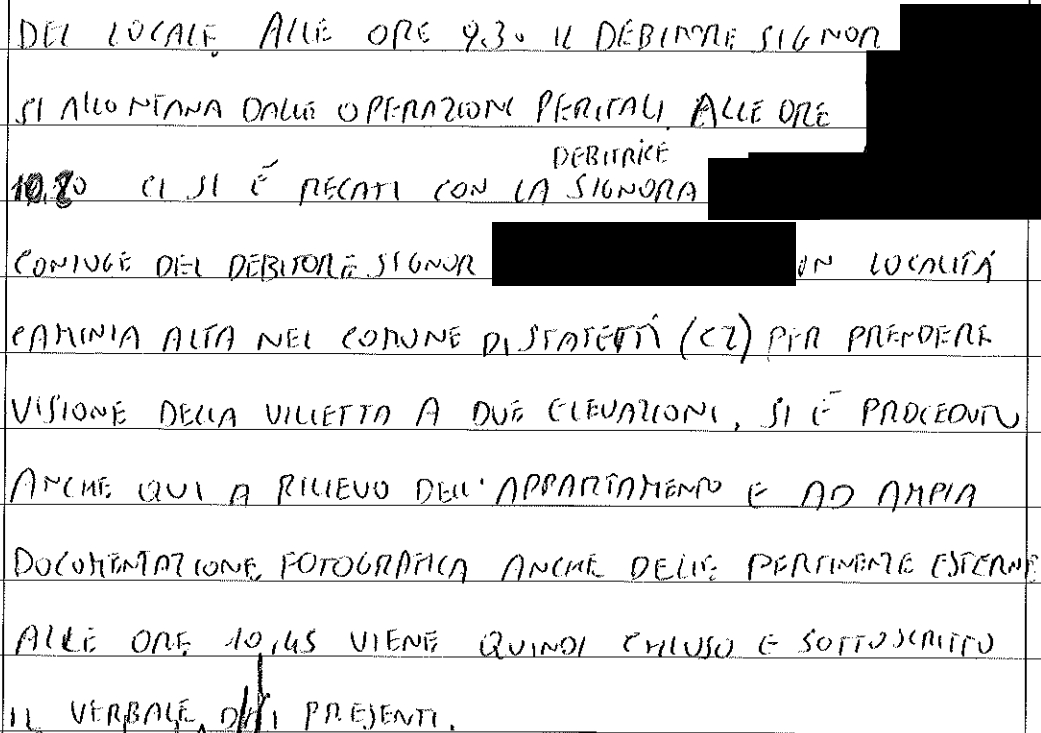 DEL LOCALE ALLE ORE 9.30 IL DEBITORE SIGNOR
SI ALLONTANA DALLE OPERAZIONI PERITALI. ALLE ORE
DEBITRICE
CI SI È RECATI CON LA SIGNORA
CONIUGE DEL DEBITORE SIGNOR IN LOCALITÀ
CAMINIA ALTA NEL COMUNE DI STALETTÌ (CZ) PER PRENDERE
VISIONE DELLA VILLETTA A DUE ELEVAZIONI, SI È PROCEDUTO
ANCHE QUI A RILIEVO DELL'APPARTAMENTO E AD AMPIA
DOCUMENTAZIONE FOTOGRAFICA ANCHE DELLE PERTINENZE ESTERNE
ALLE ORE 10,45 VIENE QUINDI CHIUSO E SOTTOSCRITTO
IL VERBALE DAI PRESENTI.